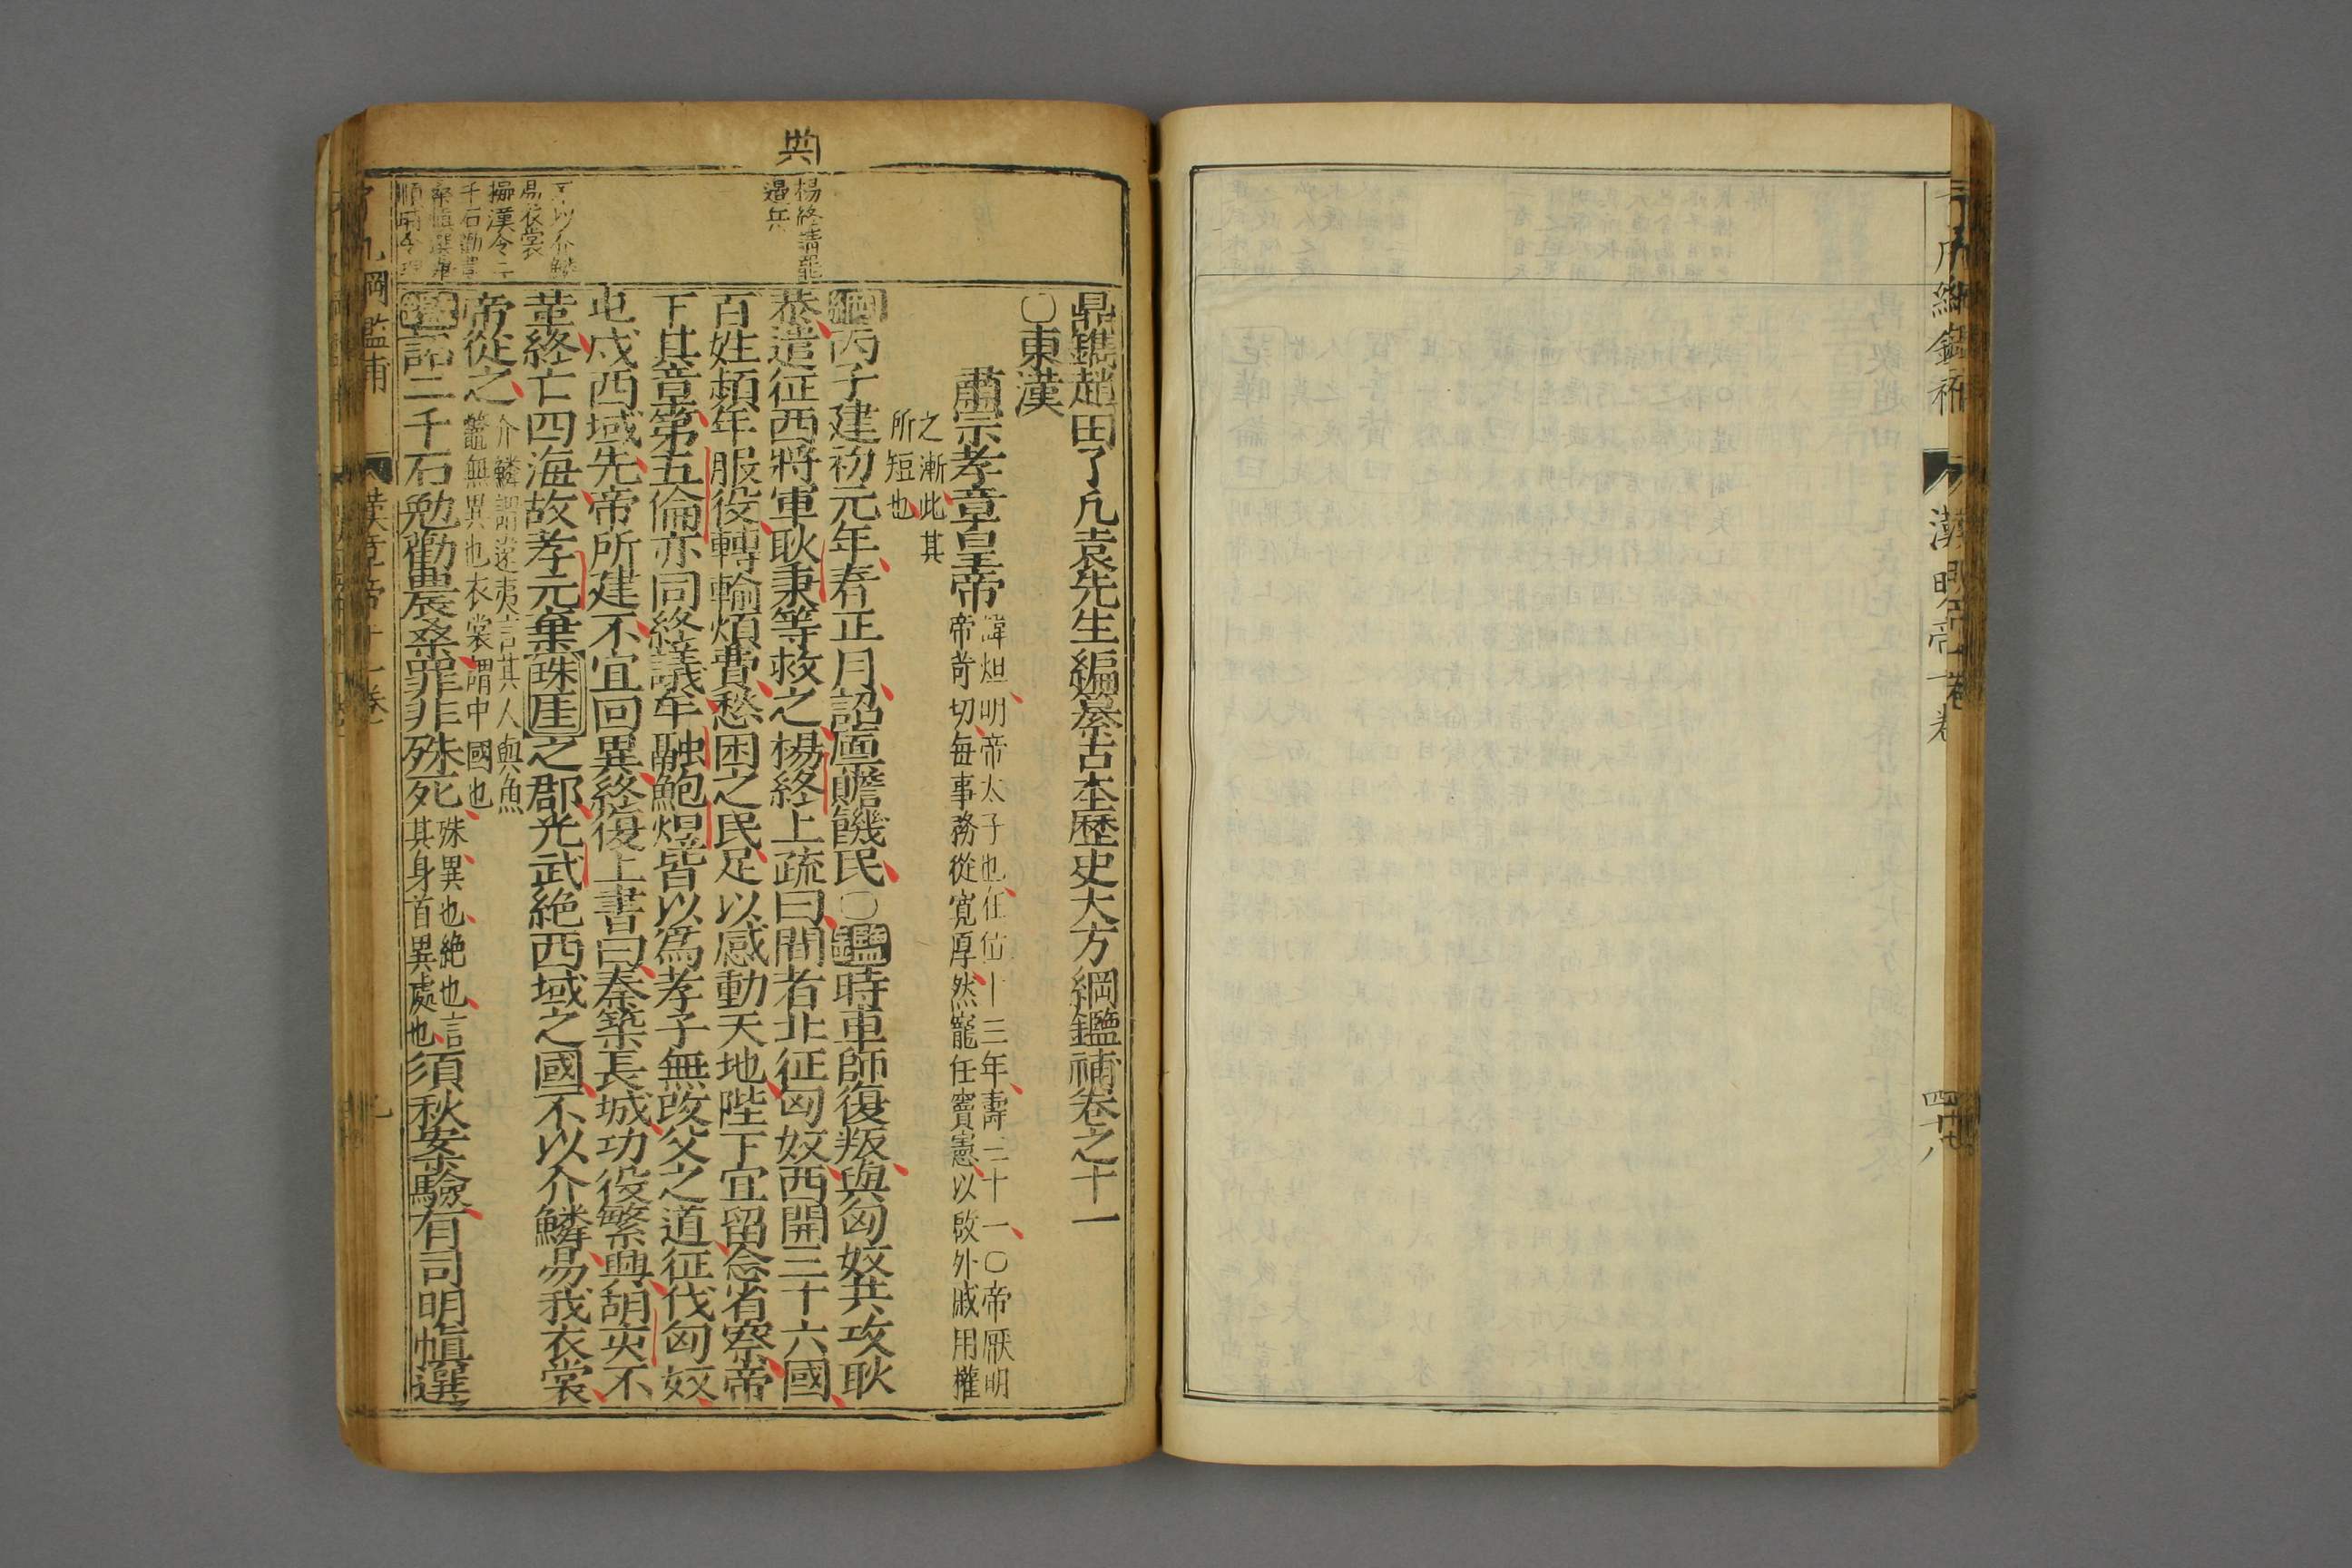 鼎鐫趙田了凡袁先生編纂古本歷史大方綱鑑補卷之十一
○東漢
肅宗孝章皇帝
諱炟明帝太子也在位十三年壽三十一○帝厭明
帝苛切每事務從寬厚然寵任竇憲以啟外戚用權
之漸此其
所短也
綱丙子建初元年春正月詔廩贍饑民○鑑時車師復叛與匈奴共攻耿
恭遣征西將軍耿秉等救之楊終上疏曰間者北征匈奴西開三十六國
百姓頻年服役轉輸煩費愁困之民足以感動天地陛下宜留念省察帝
下其章第五倫亦同終議牟融鮑昱皆以為孝子無改父之道征伐匈奴
屯戍西域先帝所建不宜回異終復上書曰秦築長城功役繁興胡亥不
革終亡四海故孝元棄珠厓之郡光武絕西域之國不以介鱗易我衣裳
帝從之
介鱗謂遠夷言其人與魚
鱉無異也衣裳謂中國也
鑑詔二千石勉勸農桑罪非殊死
殊異也絕也言
其身首異處也
須秋案驗有司明慎選
楊終請罷
邊兵
不以介鱗
易衣裳
千石勸農
了凡綱鑑補
漢章帝十一卷
漢明帝十卷
四十八